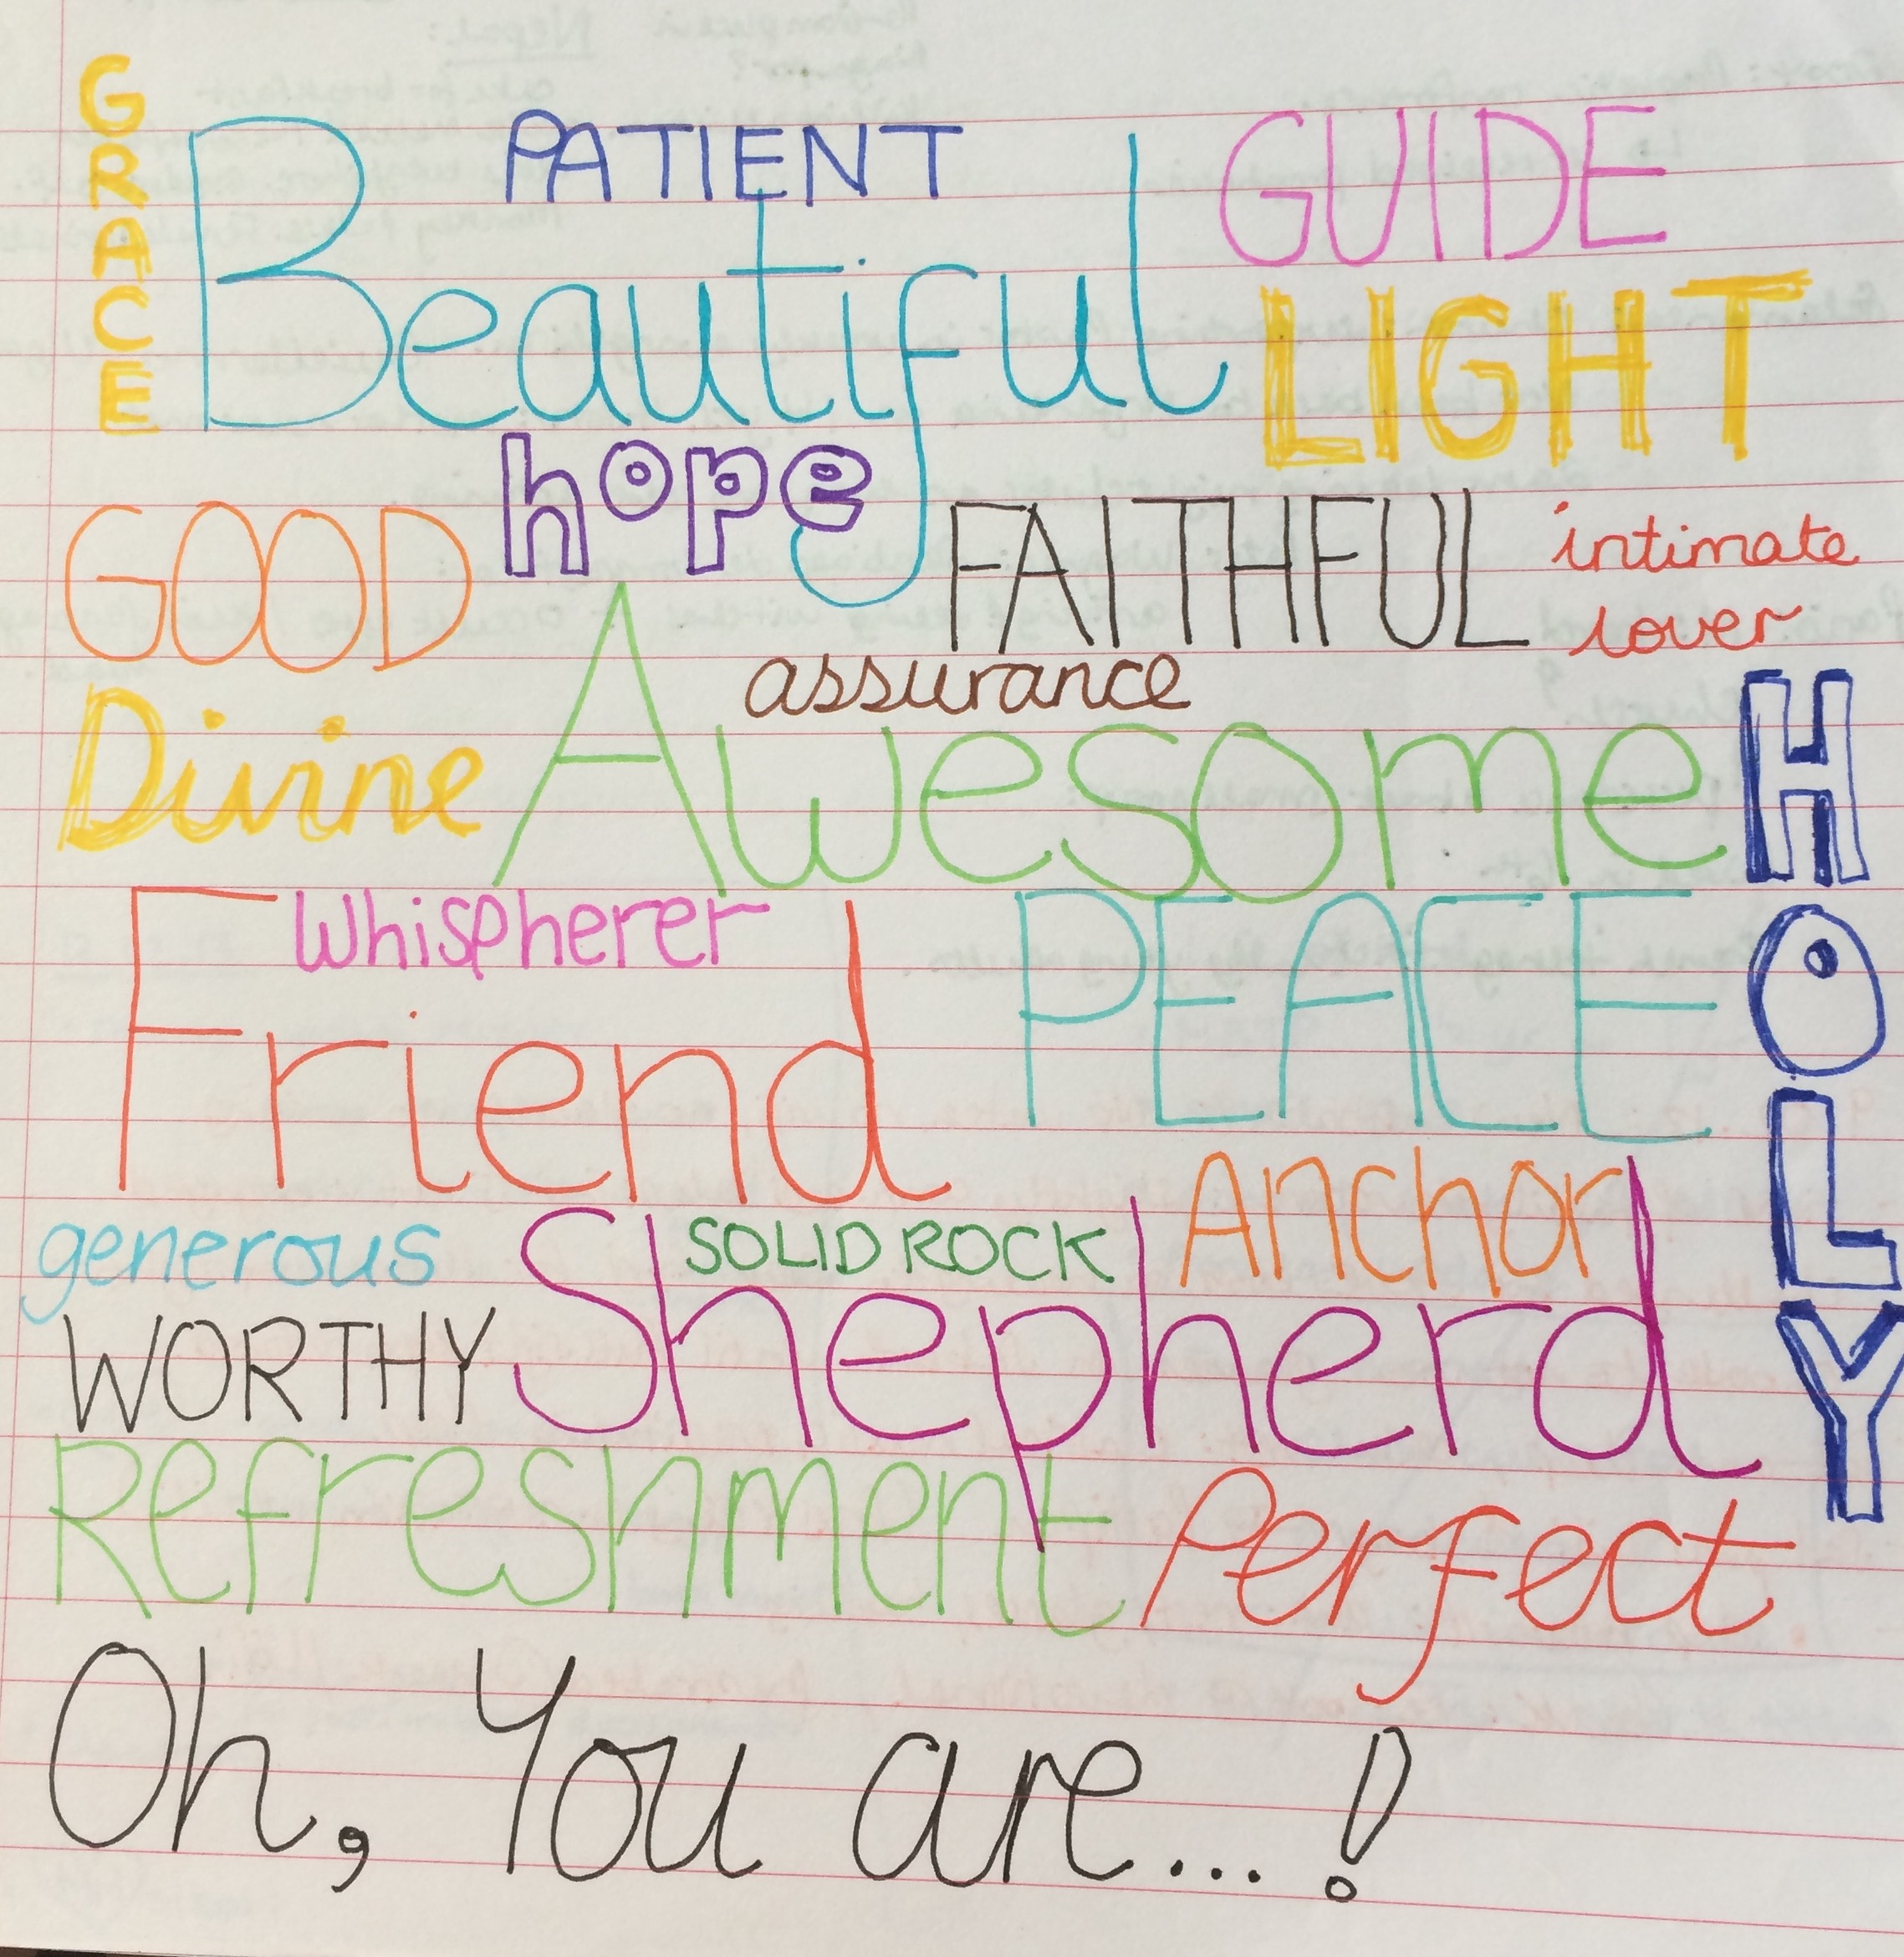 GRACE
PATIENT
GUIDE
Beautiful
LIGHT
hope
GOOD
FAITHFUL
intimate
lover
assurance
Divine
Awesome
HOLY
Whispherer
Friend
PEACE
Anchor
generous
SOLID ROCK
Shepherd
WORTHY
Refreshment
Perfect
Oh, You are...!